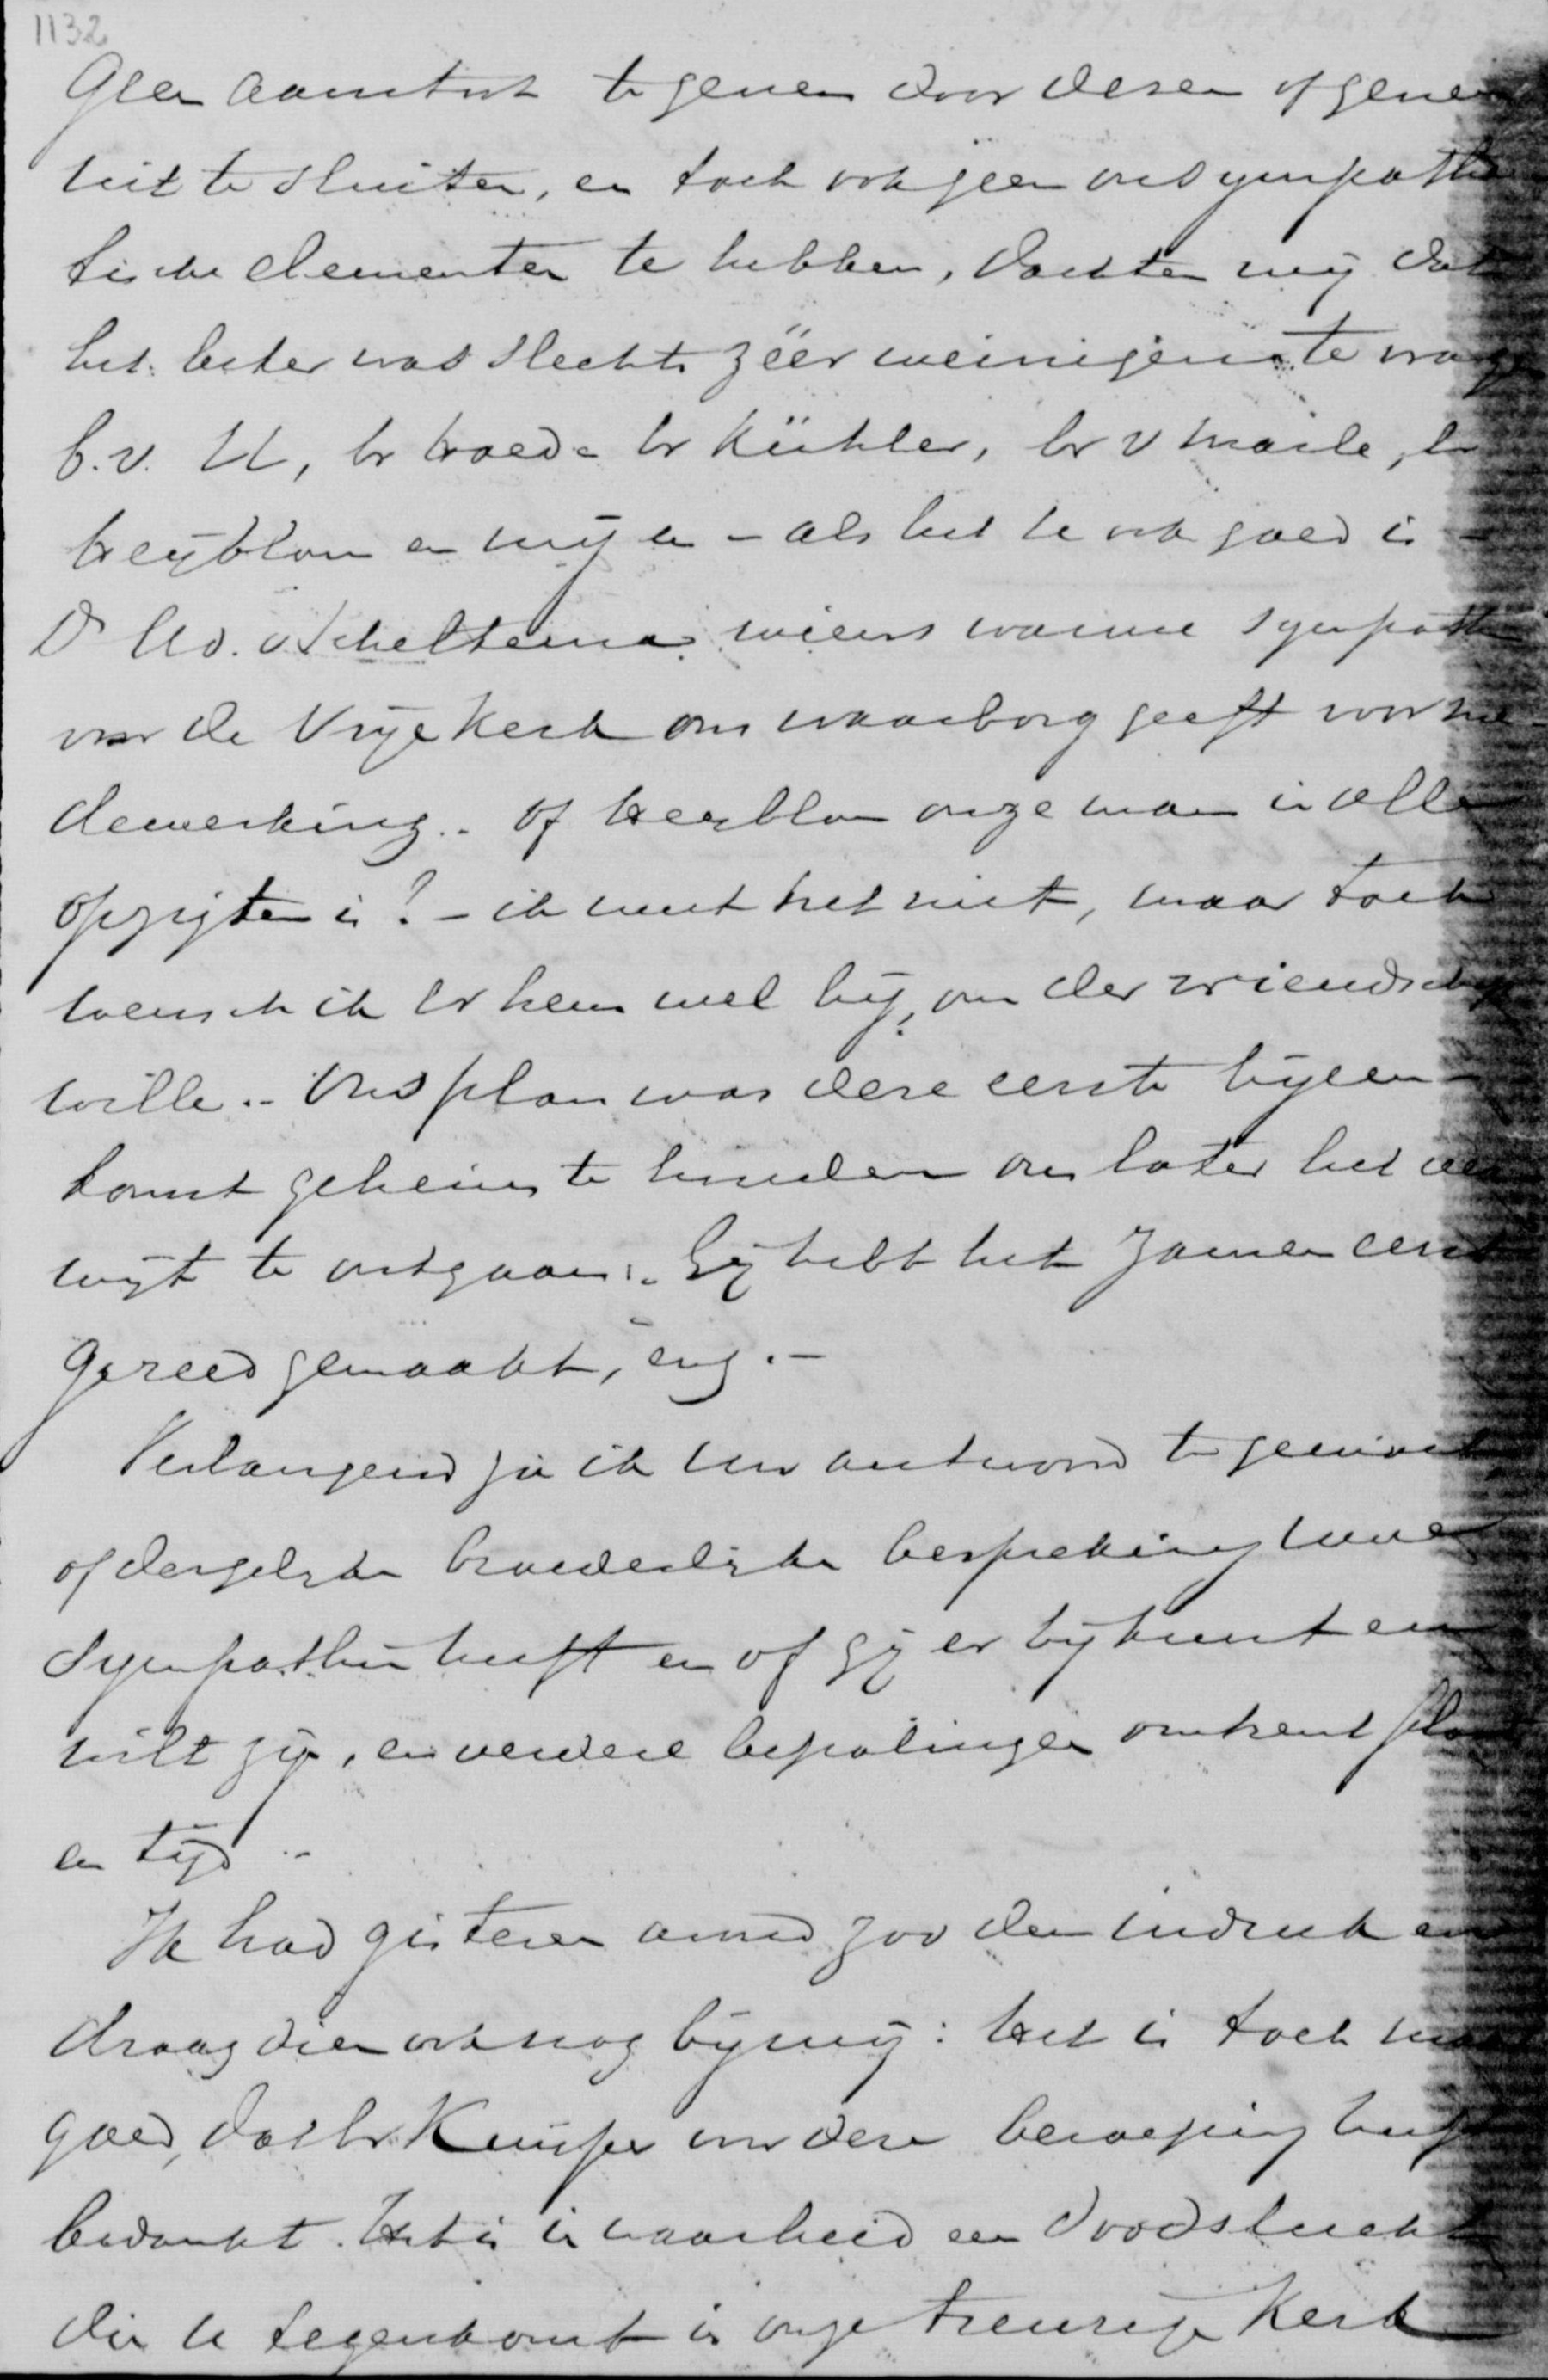 1132
Geen aanstoot te geven door dezen of genen
uit te sluiten, en toch ook geen onsympathe
tische elementen te hebben, dachten mij dat
het beter was slechts zéér weinigen te vrag
b.v. U, br Hoed br Küchler, br v Marle, br
Heijblom en mij en – als het U ook goed is –
Dr Ad. v Scheltema wiens warme sympath
voor de Vrije Kerk ons waarborg geeft voor me
dewerking. – Of Heijblom onze man in alle
opzigten is? – ik weet het niet, maar toch
wensch ik er hem wel bij, om der vriendschap
wille. – Ons plan was deze eerste bijeen-
komst geheim te houden om later het ver
wijt te ontgaan: Gij hebt het zamen eerst
gereed gemaakt, enz. –
Verlangend zie ik uw antwoord te gemoet
of dergelijke broederlijke bespreking uwe
sympathie heeft en of gij er bij kunt en
wilt zijn, en verdere bepalingen omtrent pla
en tijd –
Ik had gisteren avond zoo den indruk en
draag dien ook nog bij mij: het is toch maar
goed, dat br Kuijper voor deze beroeping heeft
bedankt. Het is in waarheid een doodslucht
die U tegenkomt in onze treurige Kerk